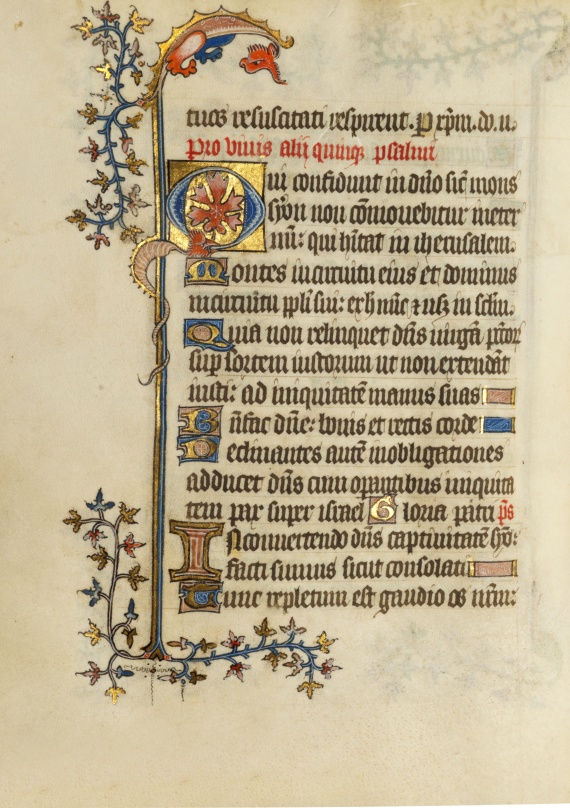 tuos resuscitati respirent. P xpm. do. n.
Pro viuis alii quinque psalmi
Qui confidunt in dno sic mons
syon non comouebitur in eter
num: qui hitat in iherusalem.
Montes in circuitu eius et dominus
in circuitu ppli sui: ex h nuc z usqz in sclm.
Quia non relinquet dns uirga pctor
sup sortem iustorum ut non extendat
iusti: ad iniquitate manus suas
Benfac dne: bonis et rectis corde
Declinantes aute in obligationes
adducet dns cum opantibus iniquita
tem pax super israel Gloria patri ps
In conuertendo dns captiuitate syo:
facti sumus sicut consolati
Tunc repletum est gaudio os nrm: